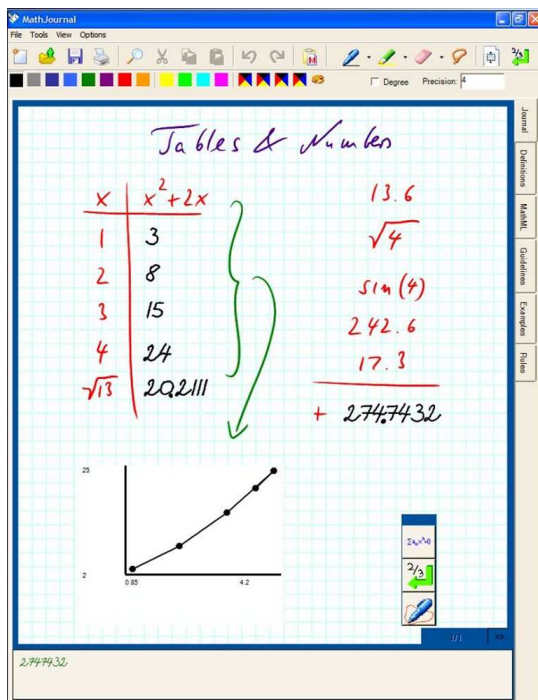 MathJournal
File Tools View Options
Degree Precision: 4
Journal
Definitions
MathML
Guidelines
Examples
Rules
Tables & Numbers
x x²+2x
1 3
2 8
3 15
4 24
√13 20.2111
13.6
√4
sin(4)
242.6
17.3
+ 274.7432
25
2
0.85 4.2
Σaₙxⁿ=0
2/3
1/1 >>
2747432